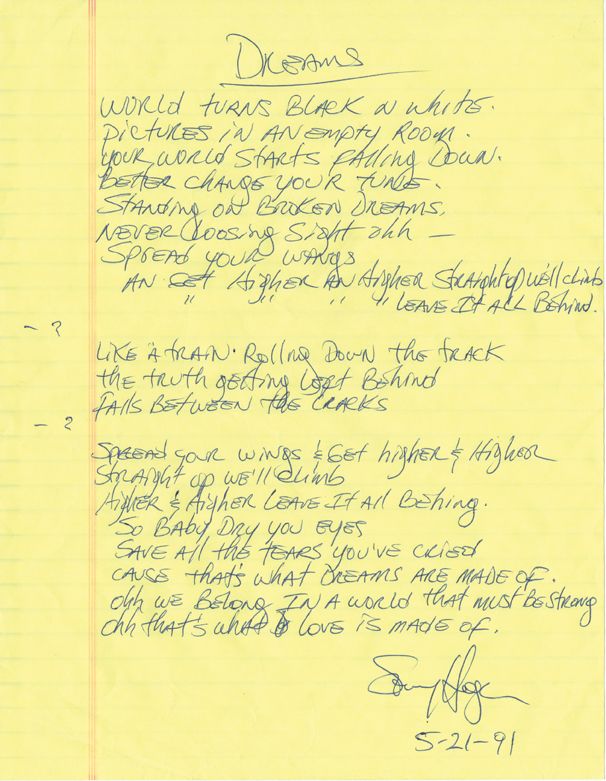 DREAMS
WORLD TURNS BLACK N WHITE.
PICTURES IN AN EMPTY ROOM.
YOUR WORLD STARTS FALLING DOWN.
BETTER CHANGE YOUR TUNE.
STANDING ON BROKEN DREAMS,
NEVER LOOSING SIGHT OHH —
SPREAD YOUR WINGS
AN GET HIGHER AN HIGHER STRAIGHT UP WE'LL CLIMB
" " " " LEAVE IT ALL BEHIND.
- ?
LIKE A TRAIN. ROLLING DOWN THE TRACK
THE TRUTH GETTING LEFT BEHIND
FALLS BETWEEN THE CRACKS
- ?
SPREAD YOUR WINGS & GET HIGHER & HIGHER
STRAIGHT UP WE'LL CLIMB
HIGHER & HIGHER LEAVE IT ALL BEHING.
SO BABY DRY YOU EYES
SAVE ALL THE TEARS YOU'VE CRIED
CAUSE THAT'S WHAT DREAMS ARE MADE OF.
OHH WE BELONG IN A WORLD THAT MUST BE STRONG
OHH THAT'S WHAT LOVE IS MADE OF.
Sammy Hagar
5-21-91